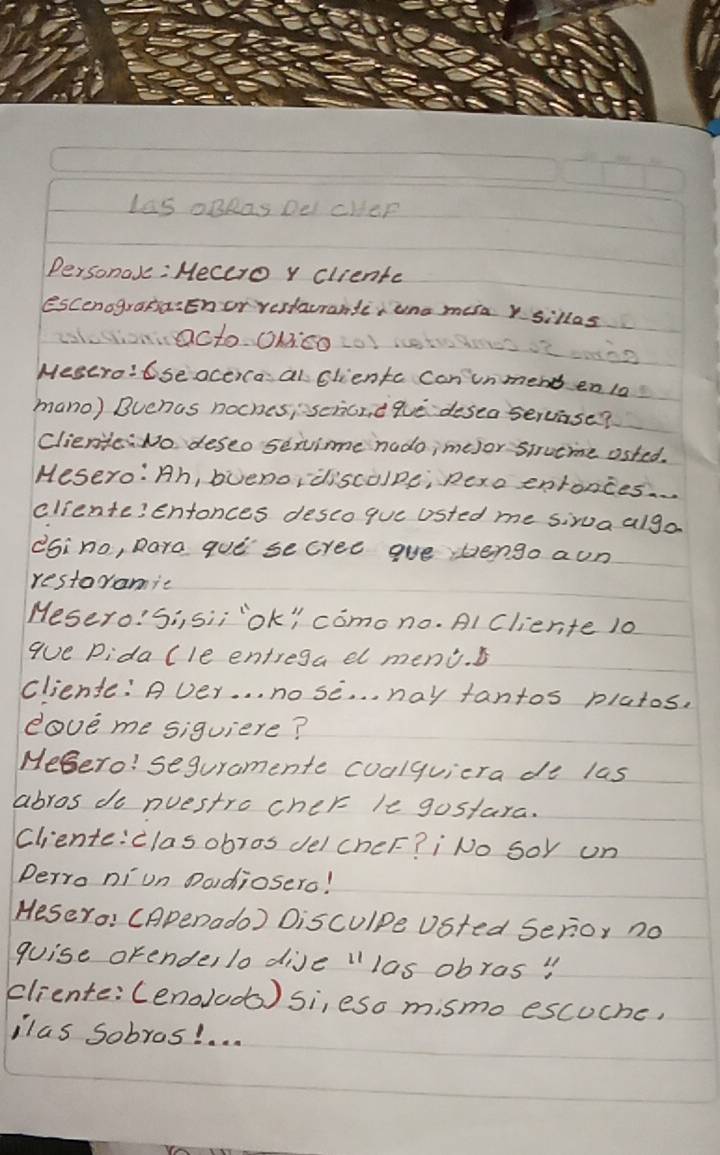 Las OBRas Del CHeF
Personaje: Mecero Y Cliente
escenografia: En un restaurante, una mesa Y sillas
acto Unico
Mesero: (se acerca al cliente con un menú en la
mano) Buenas noches, señor, ¿qué desea servirse?
Cliente: No deseo servirme nada, mejor sirveme usted.
Mesero: Ah, bueno, disculpe, pero entonces...
cliente: entonces deseo que usted me sirva algo
¿Si no, para qué se cree que vengo a un
restorante
Mesero: Si, sii "ok", cómo no. Al Cliente lo
que pida (le entrega el menú.)
cliente: A ver... no sé... hay tantos platos.
¿qué me siguiere?
Mesero: seguramente cualquiera de las
abras de nuestro chef le gustara.
Cliente: ¿las obras del chef? ¡No soy un
perro ni un pordiosero!
Mesero: (Apenado) Disculpe Usted Señor no
quise ofenderlo dije "las obras".
cliente: (enojado) si, eso mismo escuche,
¡las Sobras!...